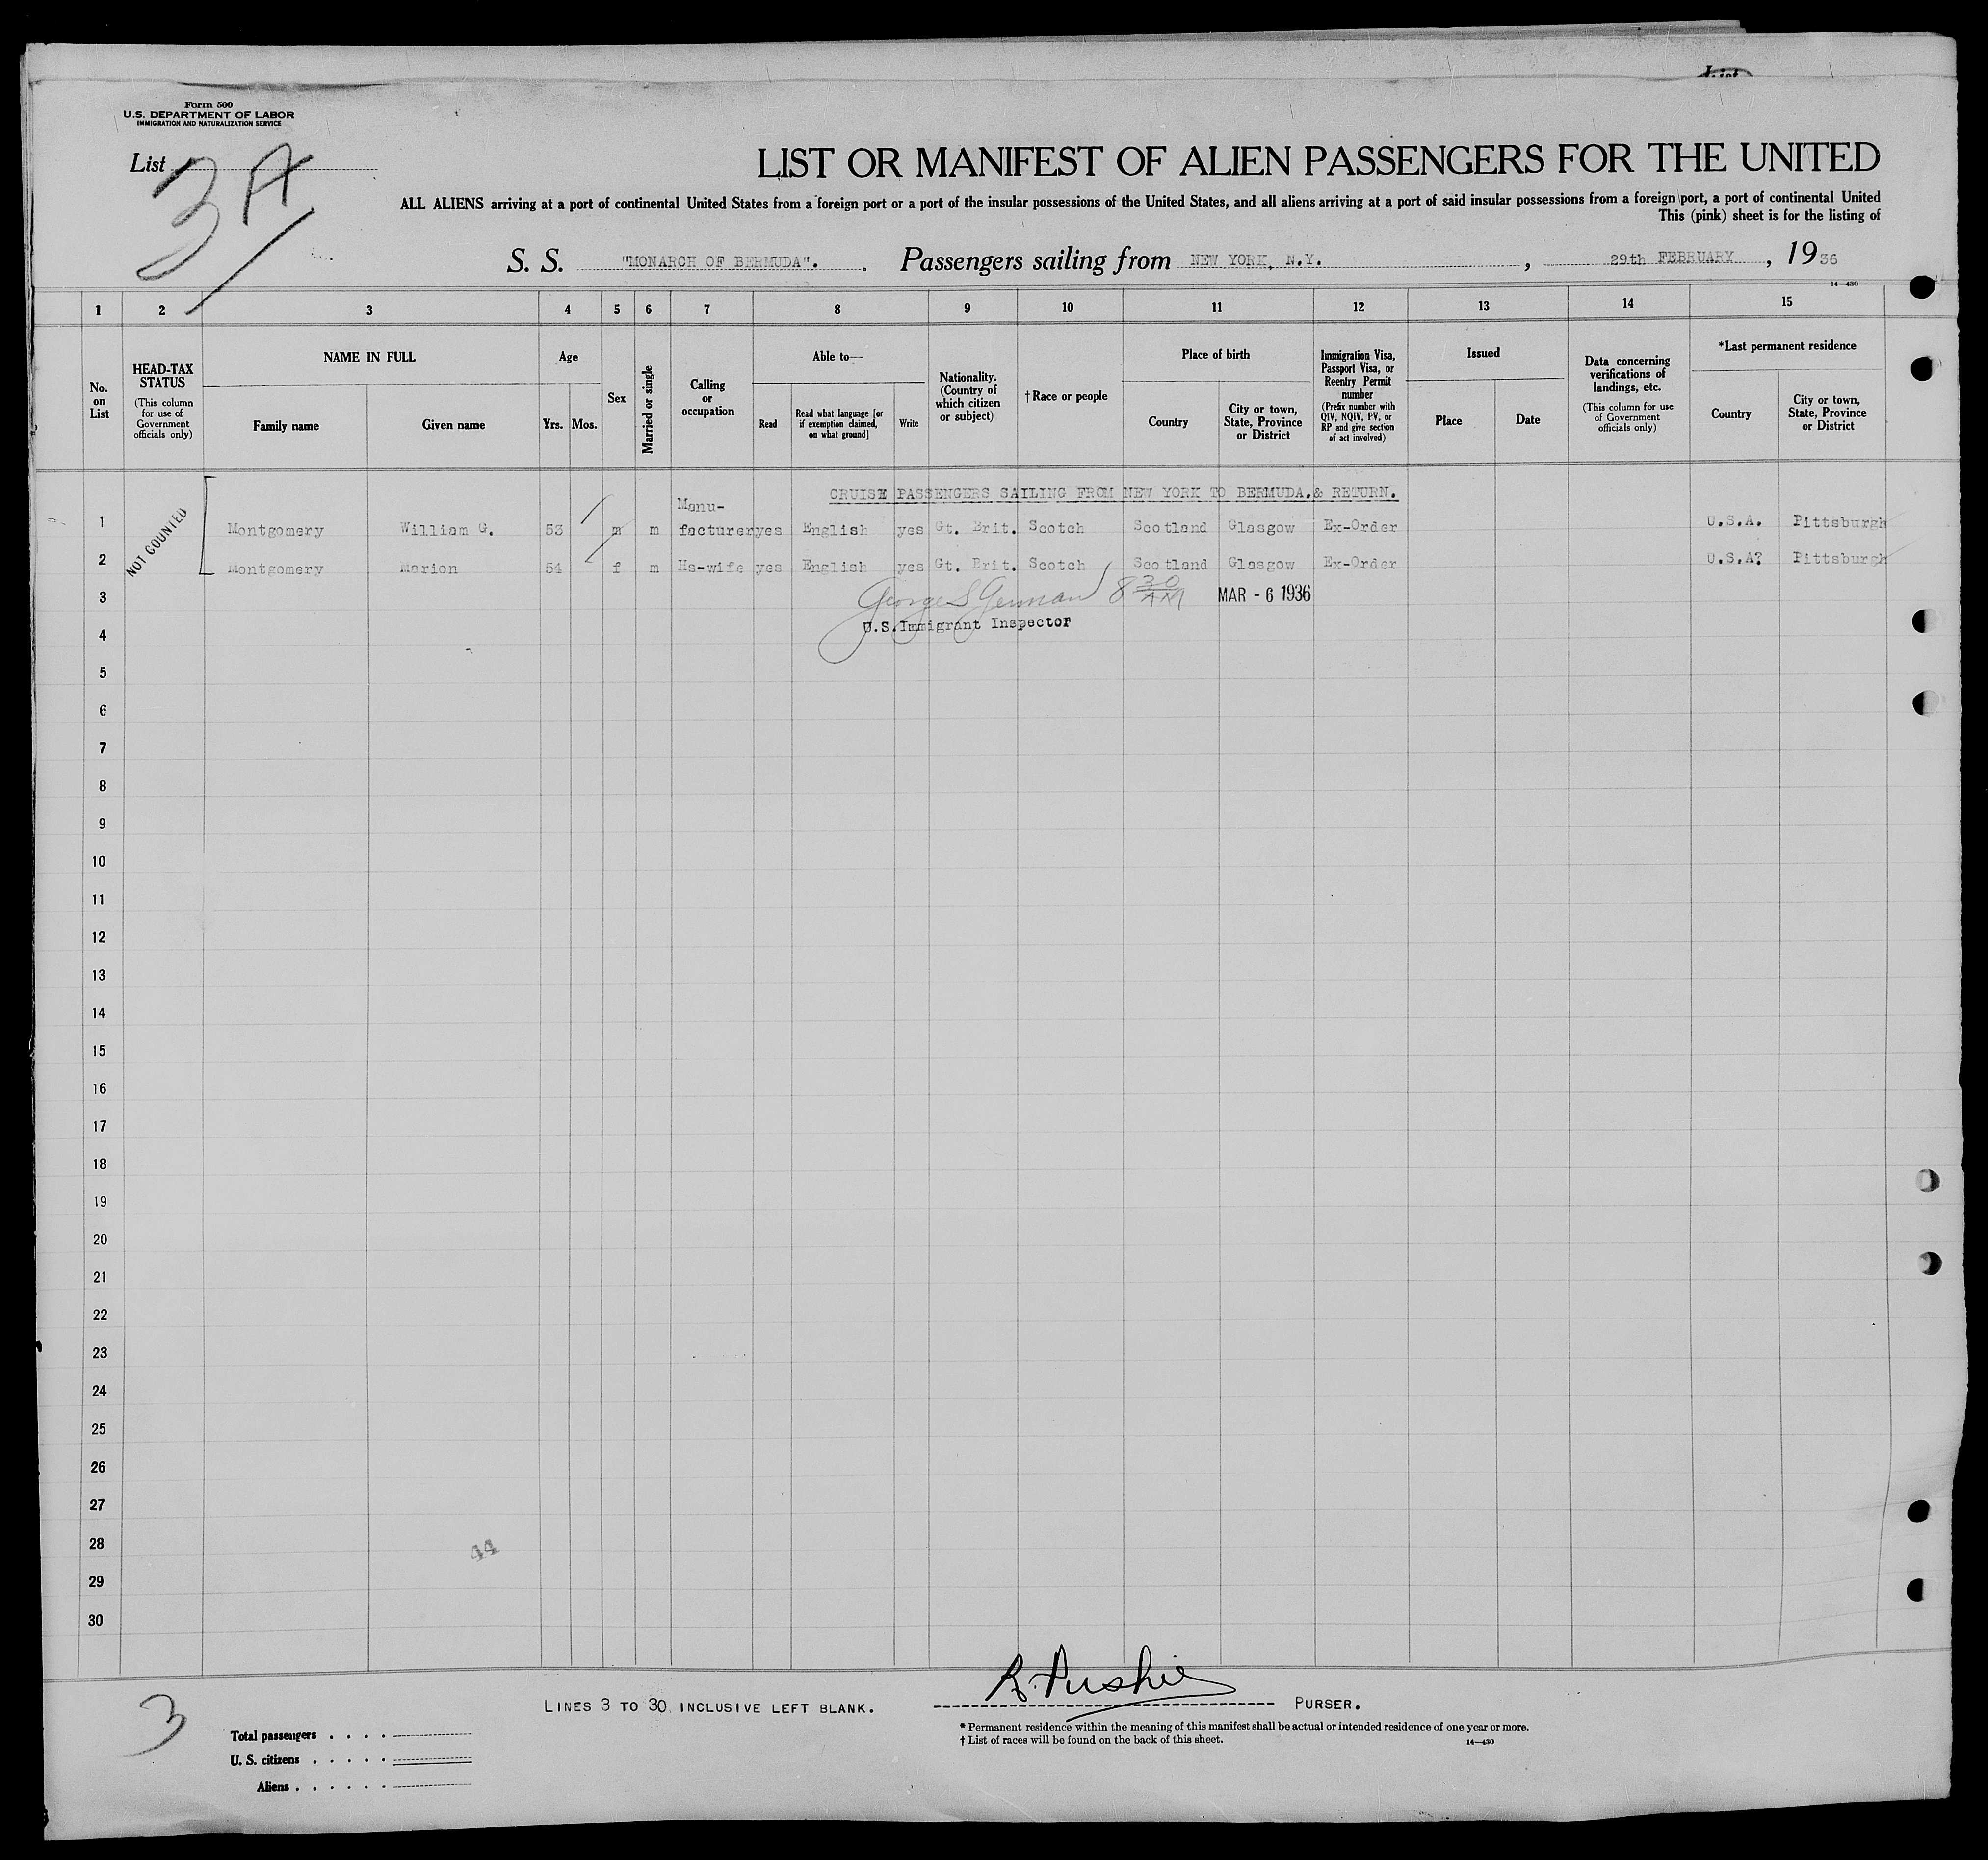 List
Form 500
U.S. DEPARTMENT OF LABOR
IMMIGRATION AND NATURALIZATION SERVICE
List 3A
LIST OR MANIFEST OF ALIEN PASSENGERS FOR THE UNITED
ALL ALIENS arriving at a port of continental United States from a foreign port or a port of the insular possessions of the United States, and all aliens arriving at a port of said insular possessions from a foreign port, a port of continental United
This (pink) sheet is for the listing of
S. S. "MONARCH OF BERMUDA". Passengers sailing from NEW YORK, N.Y. , 29th FEBRUARY , 1936
14—430
1 2 3 4 5 6 7 8 9 10 11 12 13 14 15
No. on List
HEAD-TAX STATUS
(This column for use of Government officials only)
NAME IN FULL
Family name Given name
Age
Yrs. Mos.
Sex
Married or single
Calling or occupation
Able to—
Read
Read what language [or if exemption claimed, on what ground]
Write
Nationality. (Country of which citizen or subject)
† Race or people
Place of birth
Country
City or town, State, Province or District
Immigration Visa, Passport Visa, or Reentry Permit number
(Prefix number with QIV, NQIV, PV, or RP and give section of act involved)
Issued
Place Date
Data concerning verifications of landings, etc.
(This column for use of Government officials only)
*Last permanent residence
Country
City or town, State, Province or District
CRUISE PASSENGERS SAILING FROM NEW YORK TO BERMUDA.& RETURN.
NOT COUNTED
Manu-
1 Montgomery William G. 53 m m facturer yes English yes Gt. Brit. Scotch Scotland Glasgow Ex-Order U.S.A. Pittsburgh
2 Montgomery Marion 54 f m Hs-wife yes English yes Gt. Brit. Scotch Scotland Glasgow Ex-Order U.S.A? Pittsburgh
3 George S German 8 30 AM MAR - 6 1936
4 U.S. Immigrant Inspector
5
6
7
8
9
10
11
12
13
14
15
16
17
18
19
20
21
22
23
24
25
26
27
28 44
29
30
3
LINES 3 TO 30 INCLUSIVE LEFT BLANK. PURSER.
Total passengers . . . .
U. S. citizens . . . . .
Aliens . . . . . .
* Permanent residence within the meaning of this manifest shall be actual or intended residence of one year or more.
† List of races will be found on the back of this sheet.
14—430